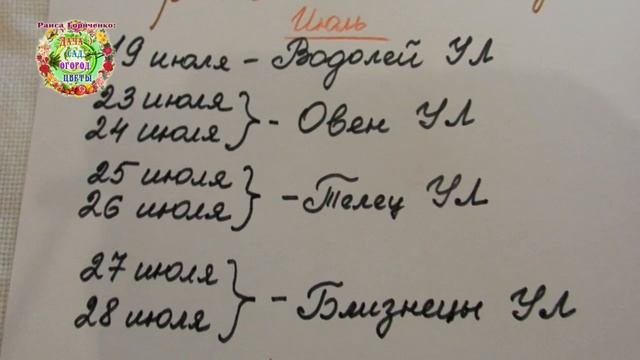 Раиса Горяченко:
ДАЧА
САД
ОГОРОД
ЦВЕТЫ
Июль
19 июля - Водолей УЛ
23 июля
24 июля } - Овен УЛ
25 июля
26 июля } - Телец УЛ
27 июля
28 июля } - Близнецы УЛ